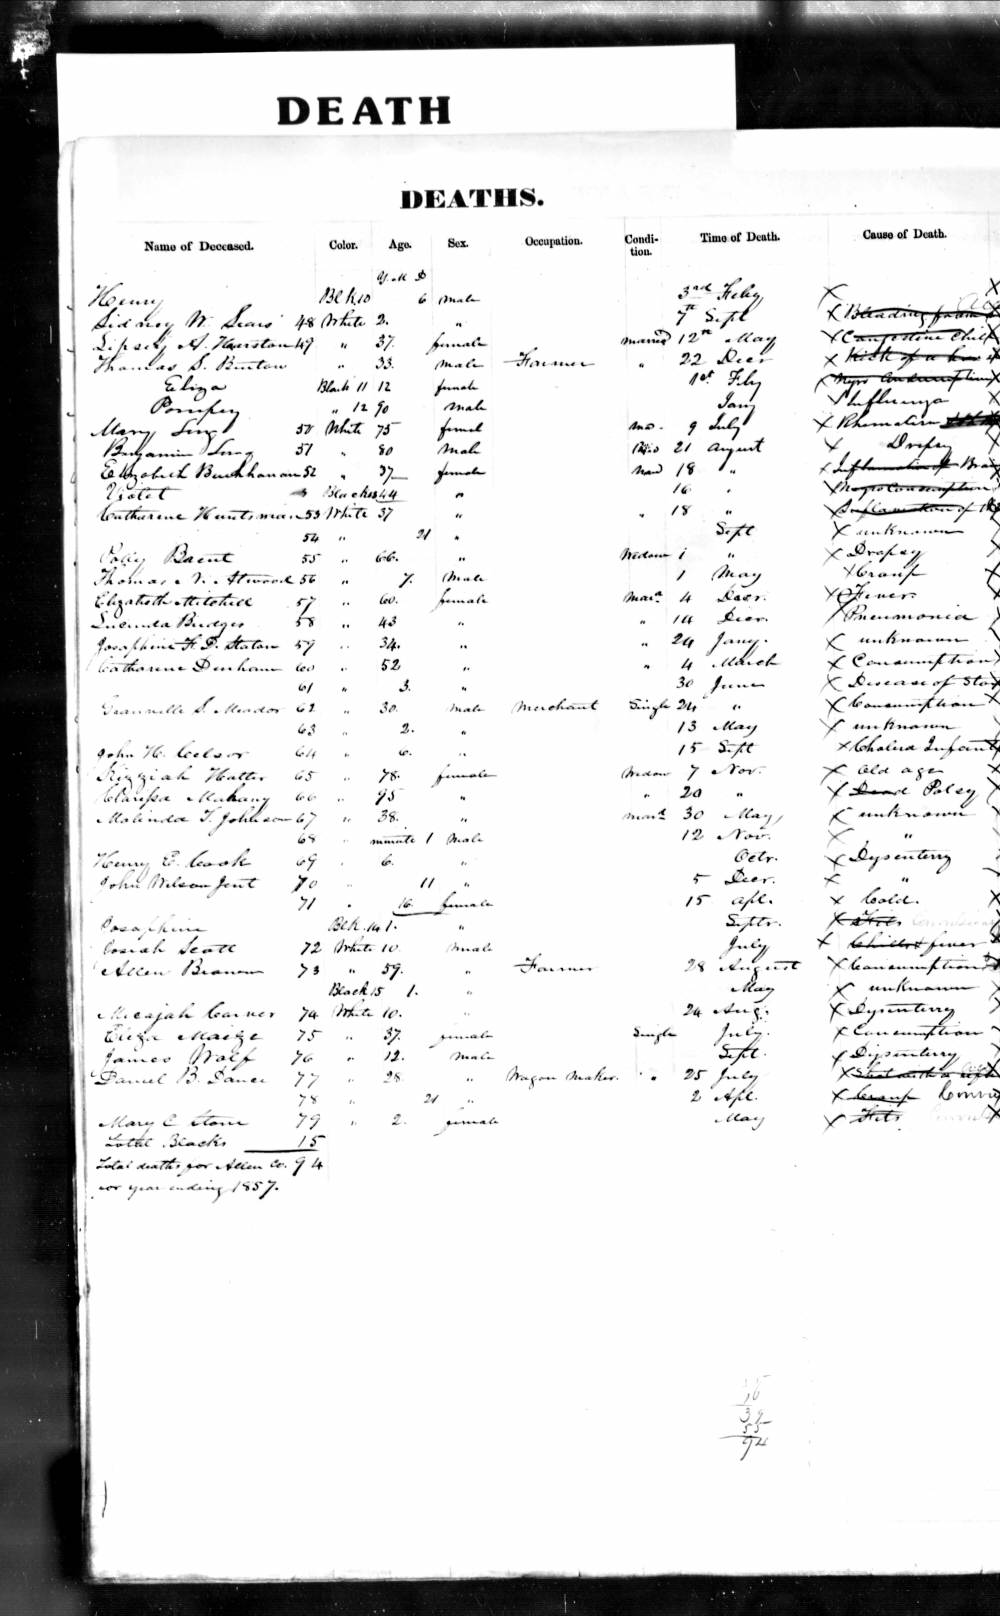 DEATH
DEATHS.
Name of Deceased. Color. Age. Sex. Occupation. Condi-tion. Time of Death. Cause of Death.
Y. M D
Henry Blk 10 6 male 3rd Feby X
Sidney W. Sears 48 White 2. " 7th Sept X Bleading from
Lipsey A. Harston 49 " 37. female married 12th May X Congestive Chill
Thomas S. Burton " 33. male Farmer " 22 Decr X Kick of a
Eliza Black 11 12 female 1st Fby X Negro Consumption
Pompey " 12 90 male Jany X Influenza
Mary Long 50 White 75 femal ma. 9 July X Rhematism
Benjamin Long 51 " 80 male 21 August X Dropsy
Elizabeth Buckhanan 52 " 37 female 18 " X Inflamation of
Violet Black 13 44 " 16 " Negro Consumption
Catharine Huntsman 53 White 37 " " 18 " X Inflamation of
54 " 21 " Sept X unknown
Polly 55 " 66. " Widow 1 " X Dropsy
Thomas N. Atwood 56 " 7. Male 1 May X Croup
Elizabeth Mitchell 57 " 60. female Mard 4 Decr. X Fever
Lucinda Bridges 58 " 43 " " 14 Decr. Pneumonia
Josaphine F. D. Staton 59 " 34. " " 24 Jany. X unknown
Catharine Denham 60 " 52 " " 4 March X Consumption
61 " 3. " 30 June X Disease of
Granville S. Meador 62 " 30. male Merchant Single 24 " X Consumption
63 " 2. " 13 May X unknown
John H. 64 " 6. " 15 Sept X Cholera Infant
Kizziah Hatter 65 " 78. female Widow 7 Nov. X Old age
Mahany 66 " 95 " " 20 " X Dead Palsy
Malinda T. Johnson 67 " 38. " mard 30 May, X unknown
68 " minute 1 Male 12 Nov. X "
Henry E. Cook 69 " 6. " Octr. X Dysentery
John Wilson Jent 70 " 11 " 5 Decr. X "
71 " 16 female 15 Apl. X Cold.
Josaphine Blk. 14 1. " Septr. X Fits
Josiah Scott 72 White 10. male July X Chills & fever
Allen 73 " 59. " Farmer 28 August X Consumption
Black 15 1. " May X unknown
Micajah Carver 74 White 10. " 24 Aug. X Dysentery
75 " 37. female Single July. X Consumption
James 76 " 12. male Sept. X Dysentery
Daniel B. 77 " 28 " Wagon Maker. " 25 July X Shot with a
78 " 21 " 2 Apl. X Croup
Mary E Stone 79 " 2. female May X Fits
Total Blacks 15
Total deaths for Allen Co. 94
for year ending 1857.
39
55
94